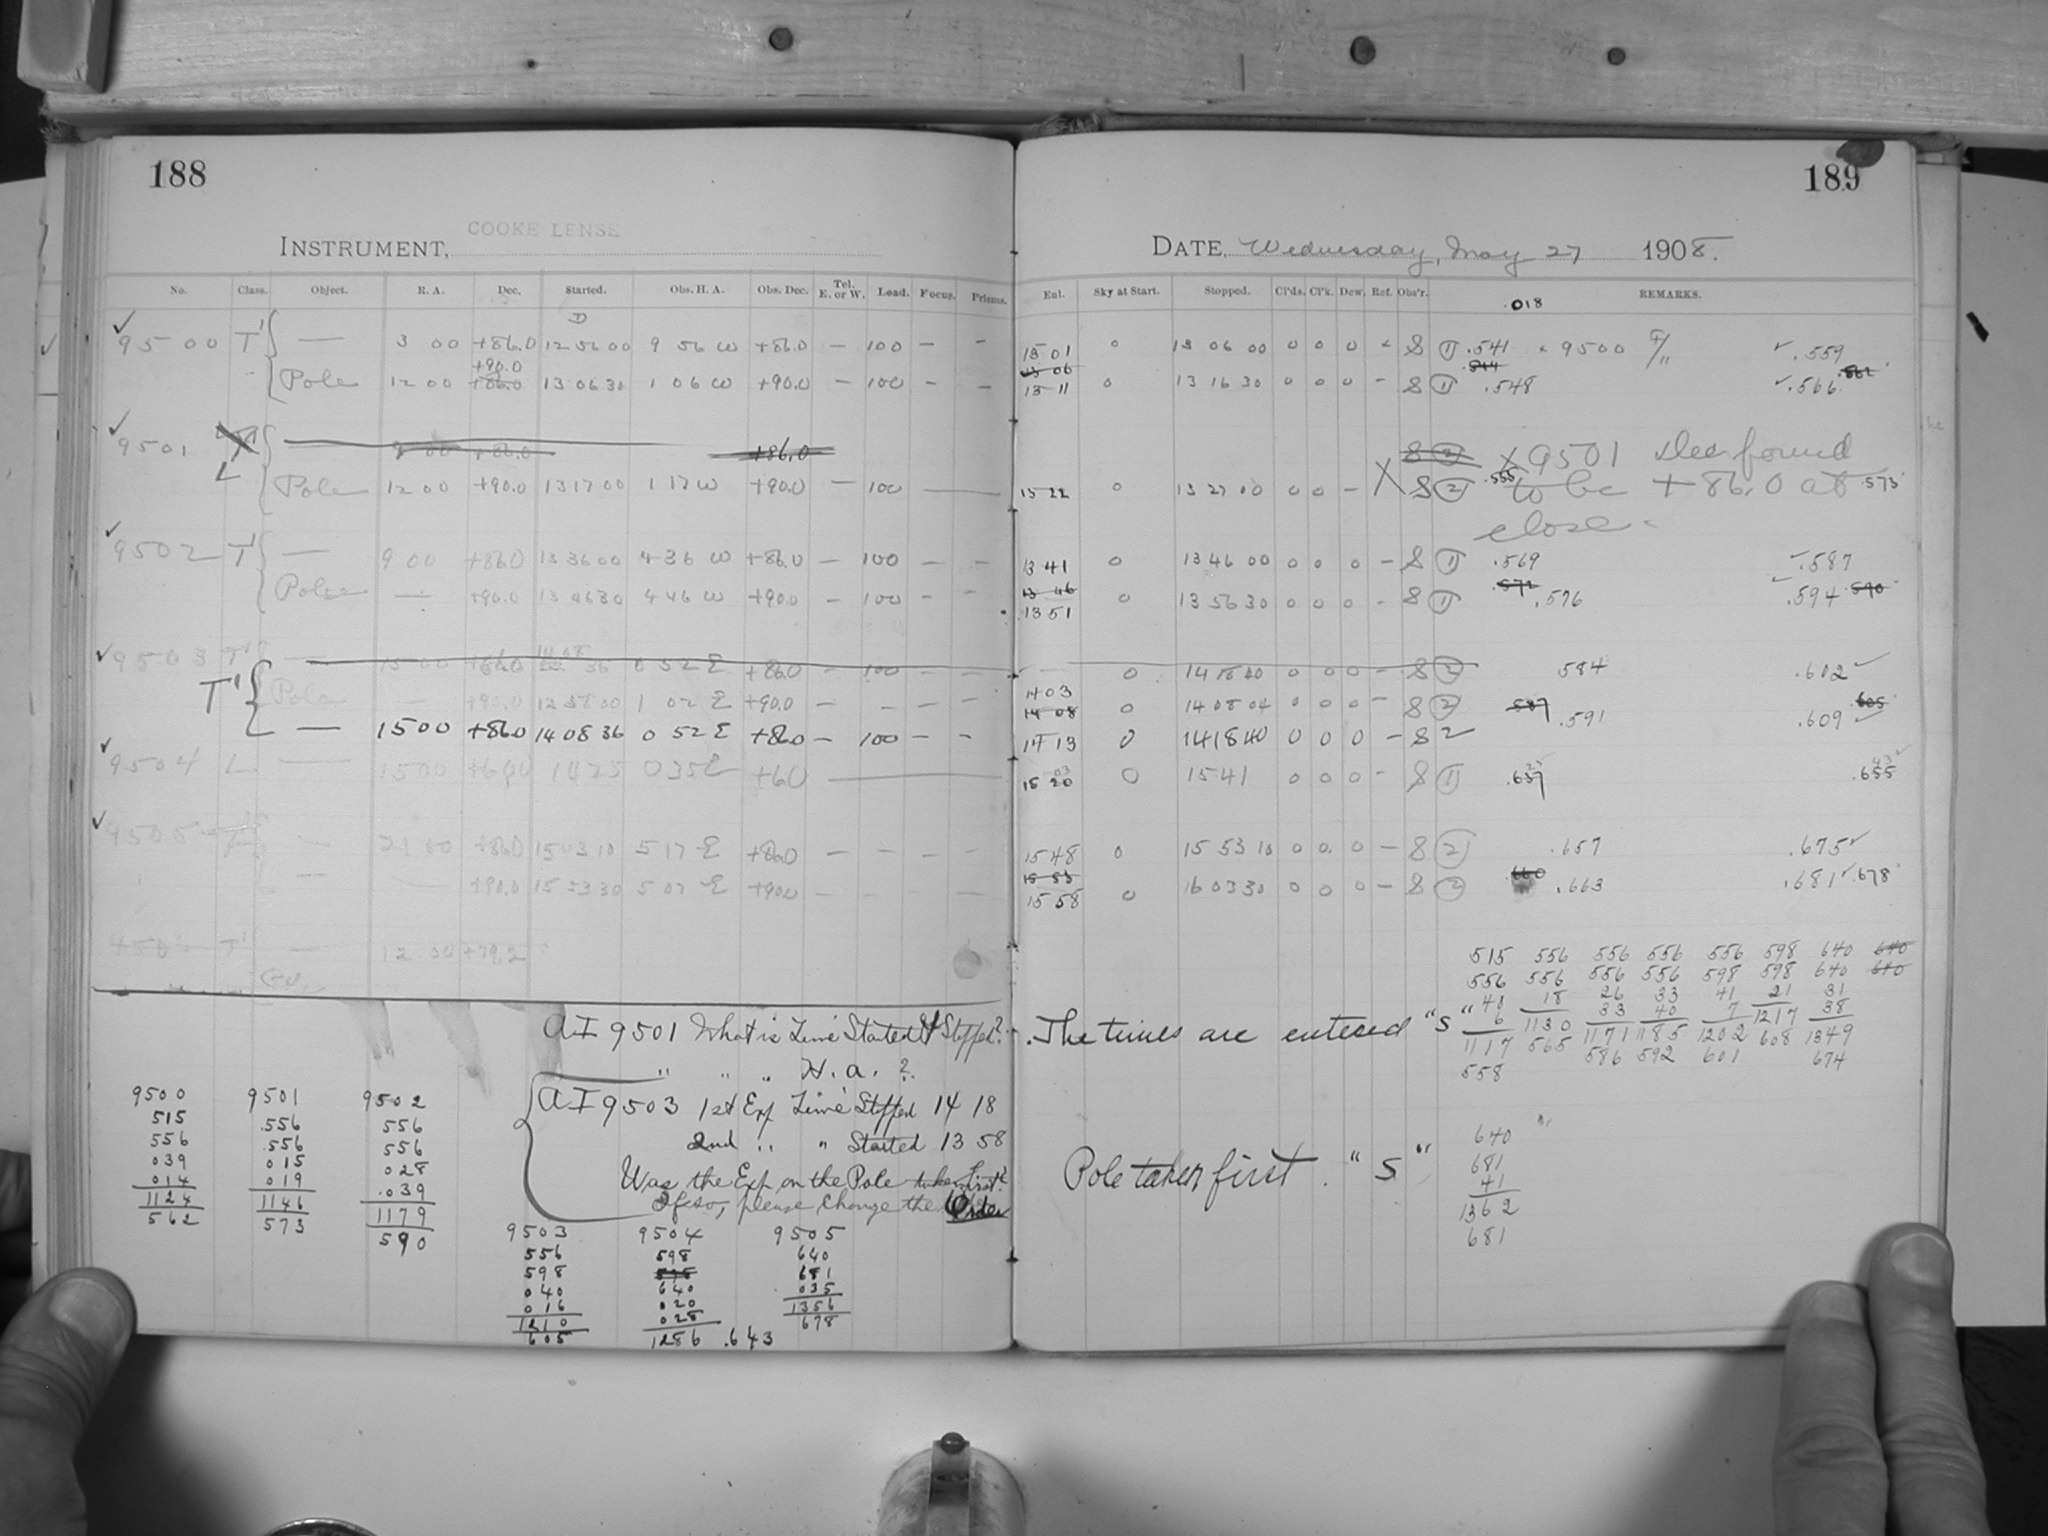 188
COOKE LENSE
INSTRUMENT,
No. Class. Object. R. A. Dec. Started. Obs. H. A. Obs. Dec. Tel. E. or W. Load. Focus. Prisms.
9500 T' — 3 00 +86.0 12 56 00 9 56 W +86.0 — 100 — —
+90.0
Pole 12 00 +86.0 13 06 30 1 06 W +90.0 — 100 — —
9501 T' 9 00 +86.0 +86.0
L Pole 12 00 +90.0 13 17 00 1 17 W +90.0 — 100 —
9502 T' — 9 00 +86.0 13 36 00 4 36 W +86.0 — 100 — —
Pole — +90.0 13 46 30 4 46 W +90.0 — 100 — —
9503 T' — 15 00 +86.0 14 08 36 0 52 E +86.0 — 100 — —
T' Pole — +90.0 12 58 00 1 02 E +90.0 — — — —
— 15 00 +86.0 14 08 36 0 52 E +86.0 — 100 — —
9504 L — 15 00 +60 14 25 0 35 E +60
9505 T' — 21 00 +86.0 15 43 10 5 17 E +86.0 — — — —
— +90.0 15 53 30 5 07 E +90.0 — — — —
T' — 12 00 +79.2
AI 9501 What is Time Started & Stopped?
" " " H. a. ?
AI 9503 1st Exp Time Stopped 14 18
2nd " " Started 13 58
Was the Exp. on the Pole taken first?
If so, please change the Order
9500 9501 9502
515 .556 556
556 .556 556
039 015 028
014 019 .039
1124 1146 1179
562 573 590
9503 9504 9505
556 598 640
598 598 681
040 640 035
016 020 1356
1210 028 678
605 1286 .643
189
DATE, Wednesday, May 27 1908.
Enl. Sky at Start. Stopped. Cl'ds. Cl'k. Dew. Ref. Obs'r. REMARKS.
.018
13 01 0 13 06 00 0 0 0 - S 1 .541 × 9500 .559
13 06 .544 .562
13 11 0 13 16 30 0 0 0 — S 1 .548 .566
S 2 X 9501 Dec found
13 22 0 13 27 00 0 0 — X S 2 .555 to be + 86.0 at .573
close.
13 41 0 13 46 00 0 0 0 — S 1 .569 .587
13 46 .572 .590
13 51 0 13 56 30 0 0 0 - S 1 .576 .594
— 0 0 0 0 — S 2 584 .602
14 03
14 08 0 14 08 04 0 0 0 — S 2 .587 .591 .605 .609
14 13 0 14 18 40 0 0 0 — S 2
15 03
15 20 0 15 41 0 0 0 - S 1 .637 .655
15 48 0 15 53 10 0 0. 0 — S 2 .657 .675
15 53 .660 .678
15 58 0 16 03 30 0 0 0 — S 2 .663 .681
515 556 556 556 556 598 640 640
556 556 556 556 598 598 640 640
40 18 26 33 41 21 31
6 1130 33 40 7 1217 38
1117 565 1171 1185 1202 608 1349
558 586 592 601 674
The times are entered "S"
Pole taken first. "S"
640
681
41
1362
681